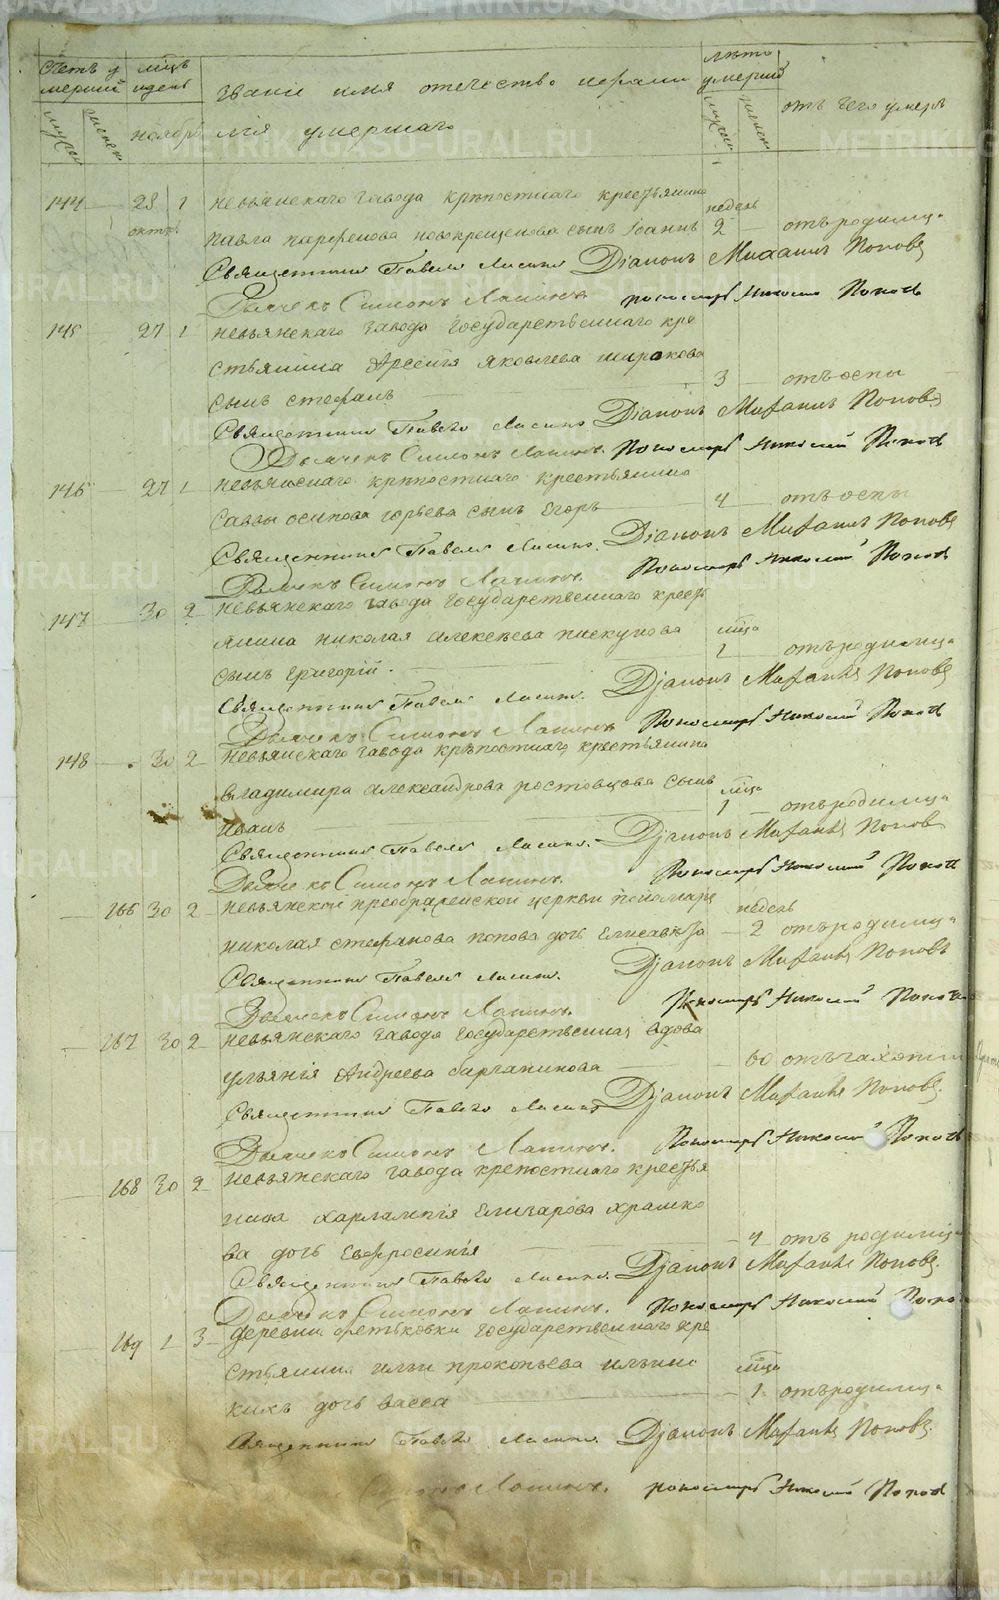 Счетъ умершихъ
мѣцъ и день
званіе имя отечество и фами
лѣта умершихъ
отъ чего умеръ
мужск женск
ноября
лія умершаго
мужск женск
144 — 28 1 невьянскаго завода крѣпостнаго крестьянина недель
октяб павла парфенова новокрещенова сынъ Iоаннъ 2 — отъ родимца
Священникъ Павелъ Діаконъ Михаилъ Поповъ
Дьячекъ Симеонъ Лапинъ пономарь Николай Поповъ
145 27 1 невьянскаго завода государственнаго кре
стьянина Арсенія яковлева широкова
сынъ стефанъ — 3 — отъ оспы
Священникъ Павелъ Діаконъ Михаилъ Поповъ
Дьячекъ Симеонъ Лапинъ. Пономарь Николай Поповъ
146 — 27 1 невьянскаго крѣпостнаго крестьянина
саввы осипова горбева сынъ Егоръ — 4 — отъ оспы
Священникъ Павелъ Діаконъ Михаилъ Поповъ
Дьячекъ Симеонъ Лапинъ. Пономарь Николай Поповъ
147 — 30 2 невьянскаго завода государственнаго кресть
янина николая алексѣева пискунова мѣца
сынъ григорій. — 1 — отъ родимца
Священникъ Павелъ Діаконъ Михаилъ Поповъ
Дьячекъ Симеонъ Лапинъ Пономарь Николай Поповъ
148 — 30 2 невьянскаго завода крѣпостнаго крестьянина
владимира александрова ростовцова сынъ мѣца
иванъ — 1 — отъ родимца
Священникъ Павелъ Діаконъ Михаилъ Поповъ
Дьячекъ Симеонъ Лапинъ. Пономарь Николай Поповъ
— 166 30 2 невьянской преображенской церкви пономаря недель
николая стефанова попова дочь Елисавета — 2 отъ родимца
Священникъ Павелъ Діаконъ Михаилъ Поповъ
Дьячекъ Симеонъ Лапинъ. Пономарь Николай Поповъ
— 167 30 2 невьянскаго завода государственная вдова
ульянія Андреева — 60 отъ чахотки
Священникъ Павелъ Діаконъ Михаилъ Поповъ.
Дьячекъ Симеонъ Лапинъ. Пономарь Николай Поповъ
— 168 30 2 невьянскаго завода крепостнаго крестья
нина харлампія Елизарова храмко
ва дочь Евфросинія — 4 отъ родимца
Священникъ Павелъ Діаконъ Михаилъ Поповъ.
Дьячекъ Симеонъ Лапинъ. Пономарь Николай Поповъ
— 169 1 3 деревни фетьковки государственнаго кре
стьянина ильи прокопьева ильины мѣца
кихъ дочь васса — 1 отъ родимца
Священникъ Павелъ Діаконъ Михаилъ Поповъ.
Симеонъ Лапинъ. пономарь Николай Поповъ
METRIKI.GASO-URAL.RU